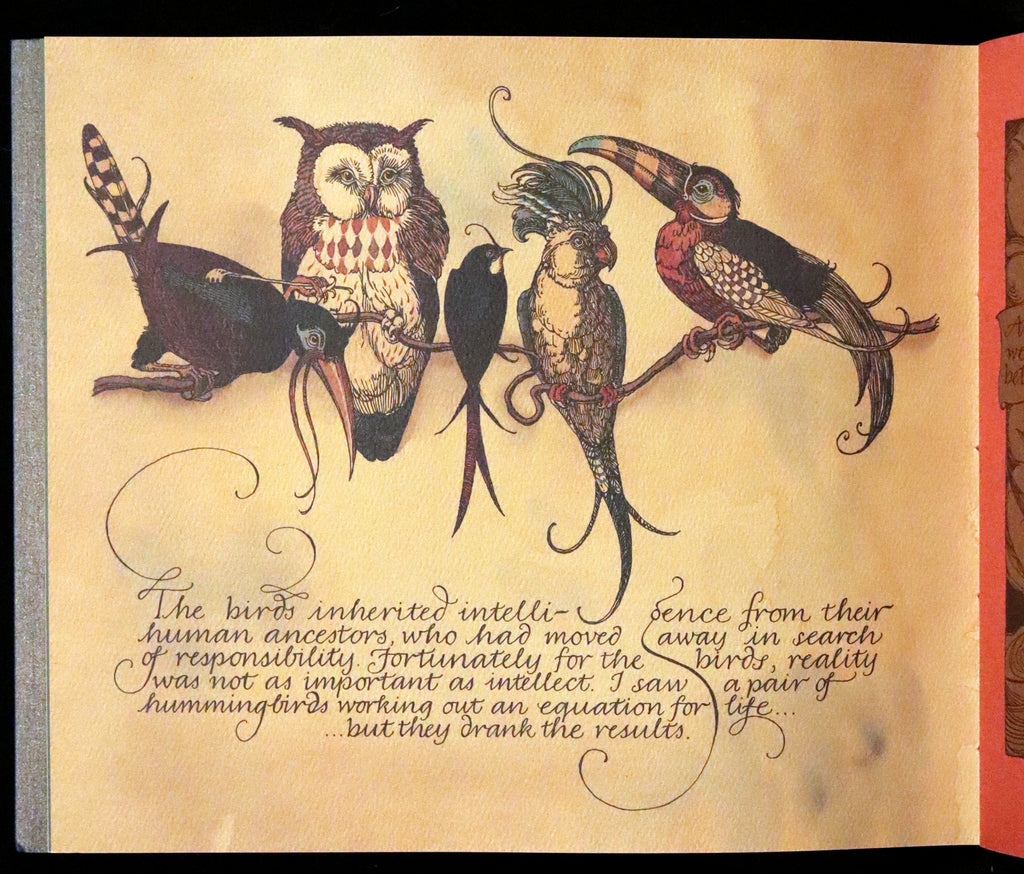 The birds inherited intelli- gence from their
human ancestors, who had moved away in search
of responsibility. Fortunately for the birds, reality
was not as important as intellect. I saw a pair of
hummingbirds working out an equation for life...
...but they drank the results.